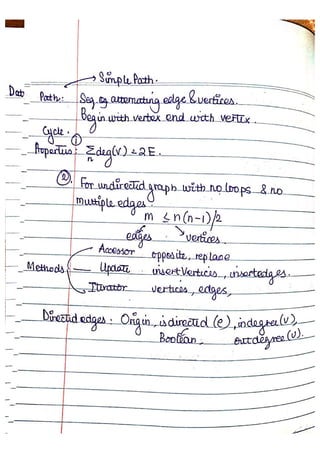 → Simple Path.
Path: Seq. of alternating edge & vertices.
Begin with vertex end with vertex.
Cycle.
Properties: ① Σ deg(v) = 2E.
n
② For undirected graph with no loops & no
multiple edges
m ≤ n(n-1)/2
edges vertices.
Accessor opposite, replace
Methods Update insertVertices, insertedges.
Iterator vertices, edges,
Directed edges: Origin, isdirected (e), indegree(v),
Boolean, outdegree(v).